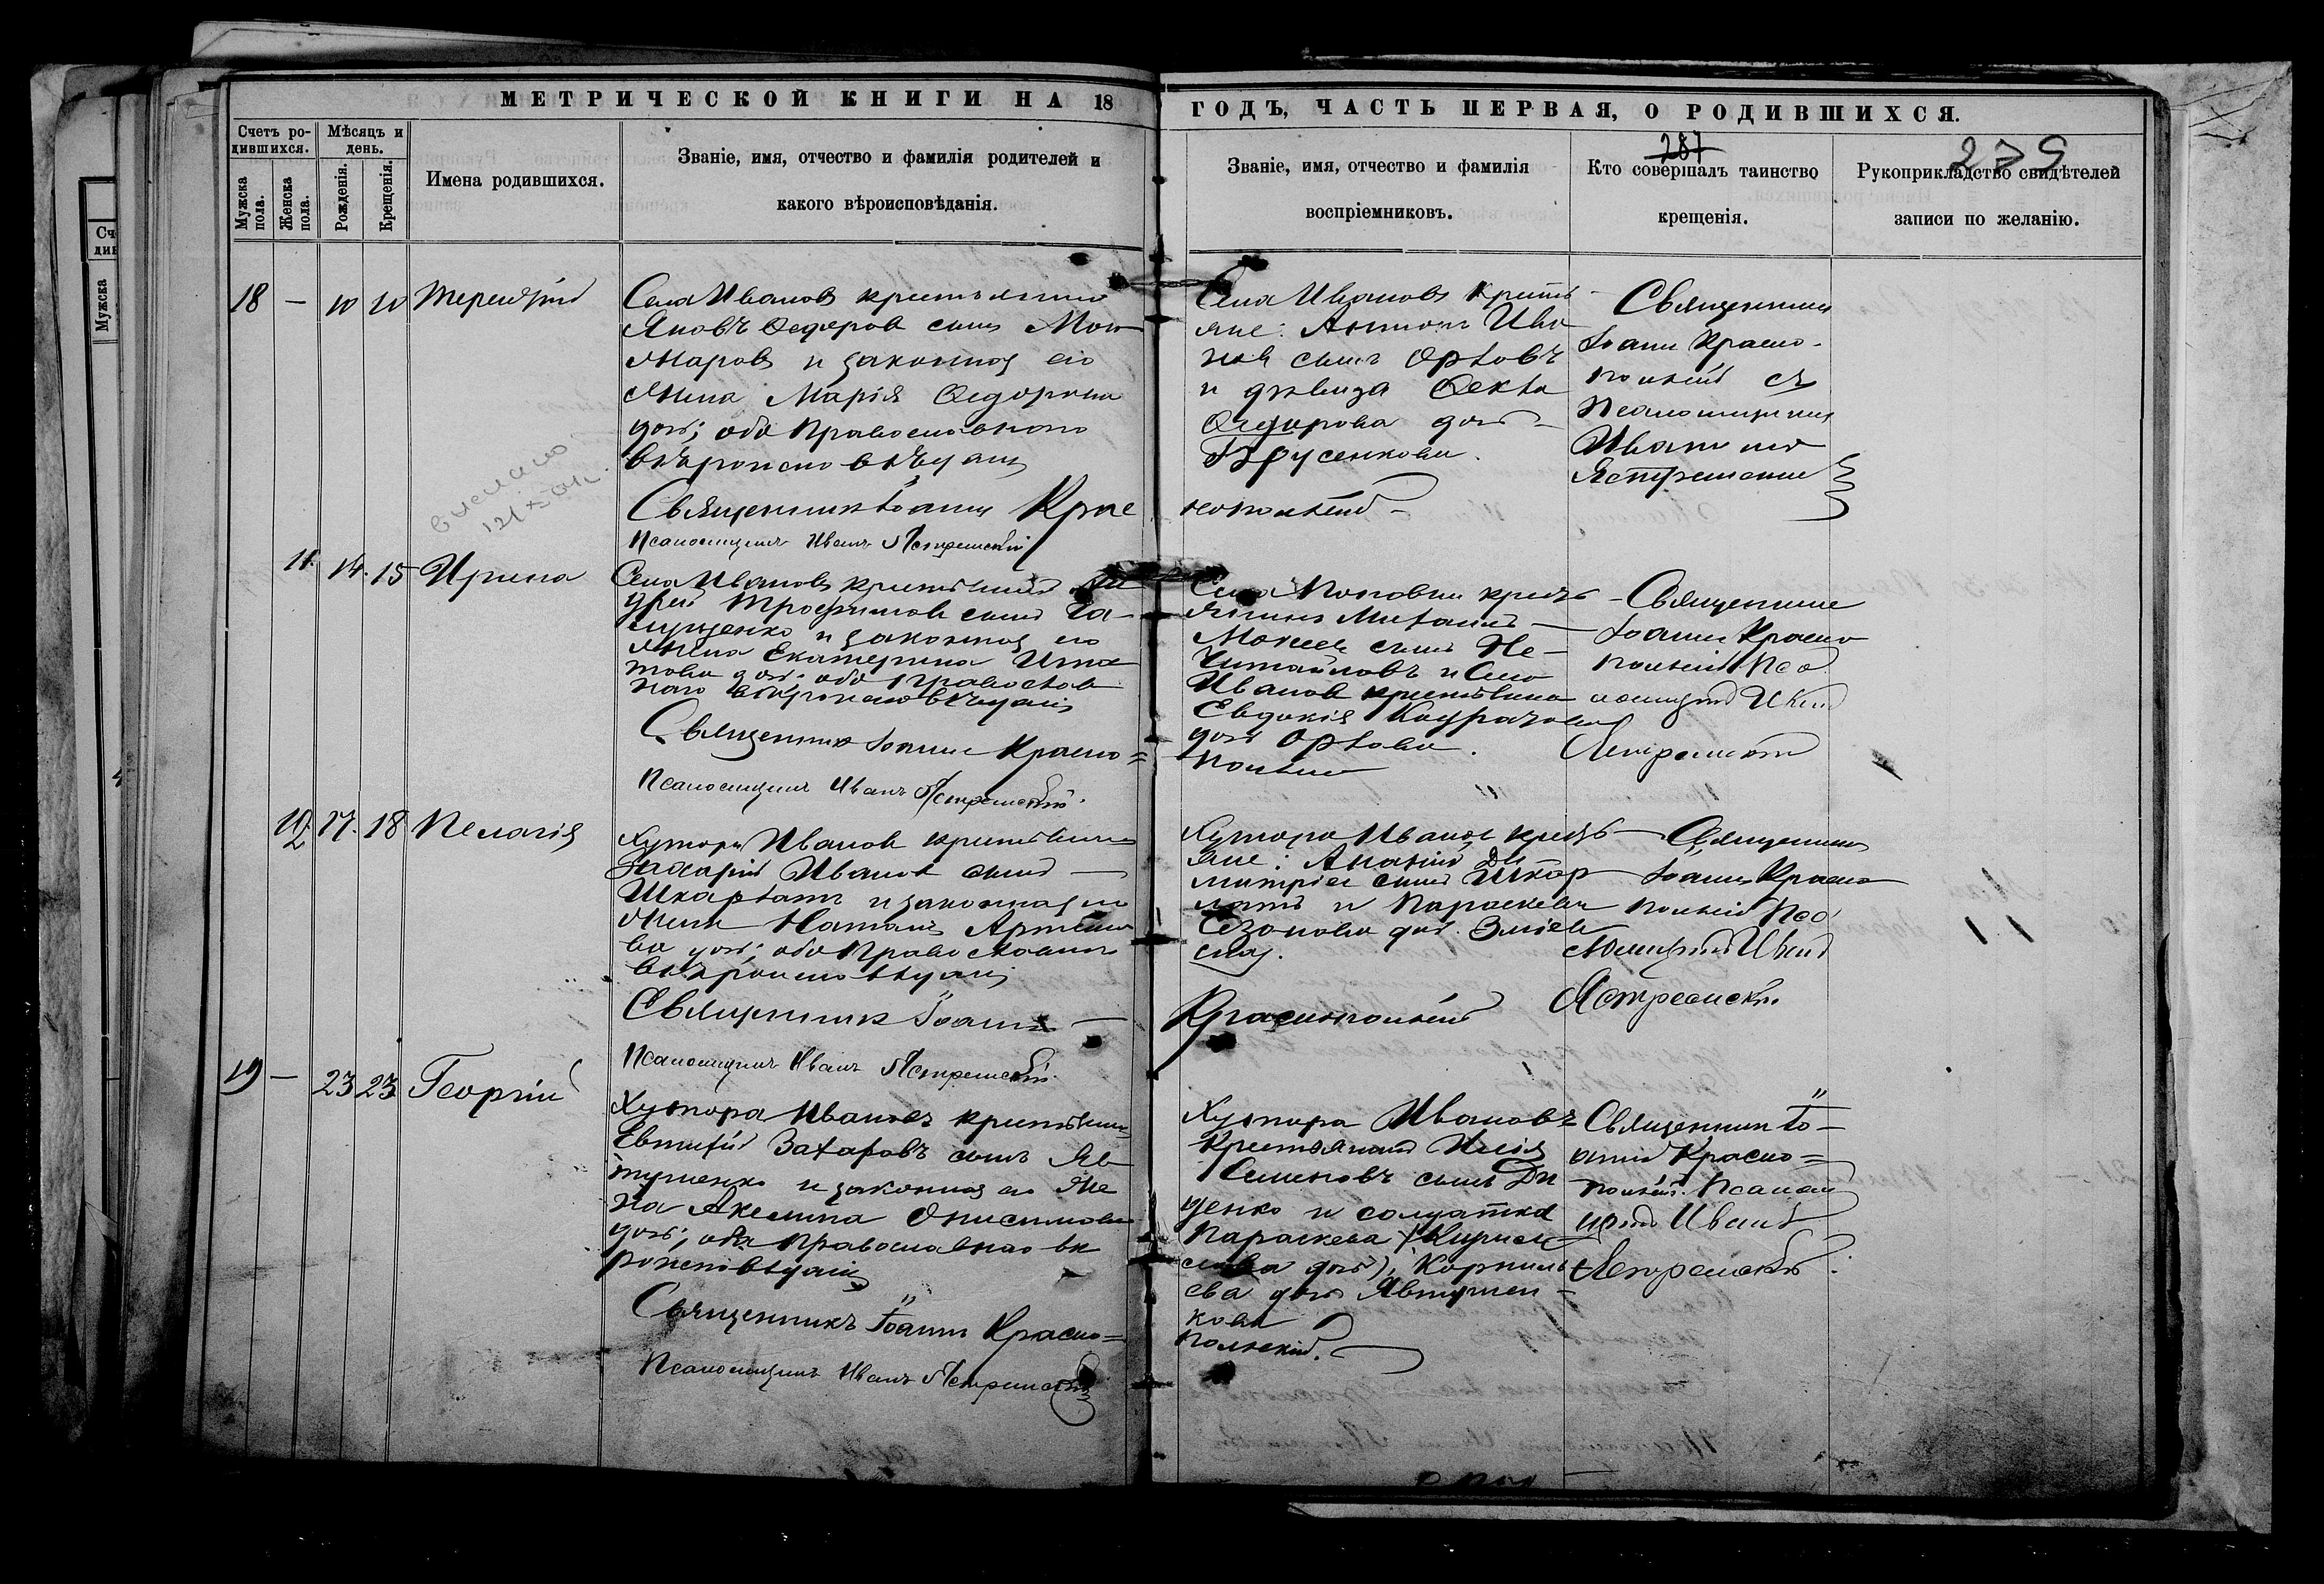 МЕТРИЧЕСКОЙ КНИГИ НА 18
ГОДЪ, ЧАСТЬ ПЕРВАЯ, О РОДИВШИХСЯ.
Счетъ ро-
дившихся.
Мѣсяцъ и
день.
Мужска
пола.
Женска
пола.
Рожденія.
Крещенія.
Имена родившихся.
Званіе, имя, отчество и фамилія родителей и
какого вѣроисповѣданія.
Званіе, имя, отчество и фамилія
воспріемниковъ.
287
Кто совершалъ таинство
крещенія.
279
Рукоприкладство свидѣтелей
записи по желанію.
18 — 10 10 Терентій
Села Ивановъ крестьянинъ
Яковъ Федоровъ сынъ
и законная его
жена Марія Федорова
дочь; оба Православнаго
вѣроисповѣданія
Священникъ Іоаннъ Крас
нопольскій
Псаломщикъ Иванъ Ястремскій
Села Ивановъ кресть
яне: Антонъ Ива
новъ сынъ Орловъ
и дѣвица Фекла
Федорова дочь
Брусенкова.
Священникъ
Іоаннъ Красно-
польскій съ
Псаломщикомъ
Иваномъ
Ястремскимъ
11. 14. 15 Ирина
Села Ивановъ крестьянинъ Ан
дрей Трофимовъ сынъ
и законная его
жена Екатерина Игна
това дочь; оба Православ
наго вѣроисповѣданія
Священникъ Іоаннъ Красно=
польскій
Псаломщикъ Иванъ Ястремскій.
Села Поповки кресть
янинъ Михаилъ
Мокіевъ сынъ Не-
читайловъ и Села
Ивановъ крестьянка
Евдокія
дочь Орлова.
Священникъ
Іоаннъ Красно
польскій Пса
ломщикъ Иванъ
Ястремскій
12. 17. 18 Пелагія
Хутора Ивановъ крестьянинъ
Захарій Ивановъ сынъ
Шкарлатъ и законная его
жена Наталія Артемо
ва дочь; оба Православнаго
вѣроисповѣданія
Священникъ Іоаннъ —
Краснопольскій
Псаломщикъ Иванъ Ястремскій.
Хутора Ивановъ кресть
яне: Ананій Ди
митріевъ сынъ Шкар
латъ и Параскева
Сазонова дочь
Священникъ
Іоаннъ Красно
польскій Пса
ломщикъ Иванъ
Ястремскій.
19 — 23 23 Георгій
Хутора Ивановъ крестьянинъ
Евтихій Захаровъ сынъ Яв
тушенко и законная его же
на Акелина Онисимова
дочь; оба Православнаго вѣ
роисповѣданія
Священникъ Іоаннъ Красно=
польскій.
Псаломщикъ Иванъ Ястремскій
Хутора Ивановъ
Крестьянинъ Илія
Семеновъ сынъ Ди
денко и солдатка
Параскева (Кирил
лова дочь), Корниль
ева дочь Явтушен-
кова
Священникъ Іо-
аннъ Красно=
польскій. Псалом
щикъ Иванъ
Ястремскій.